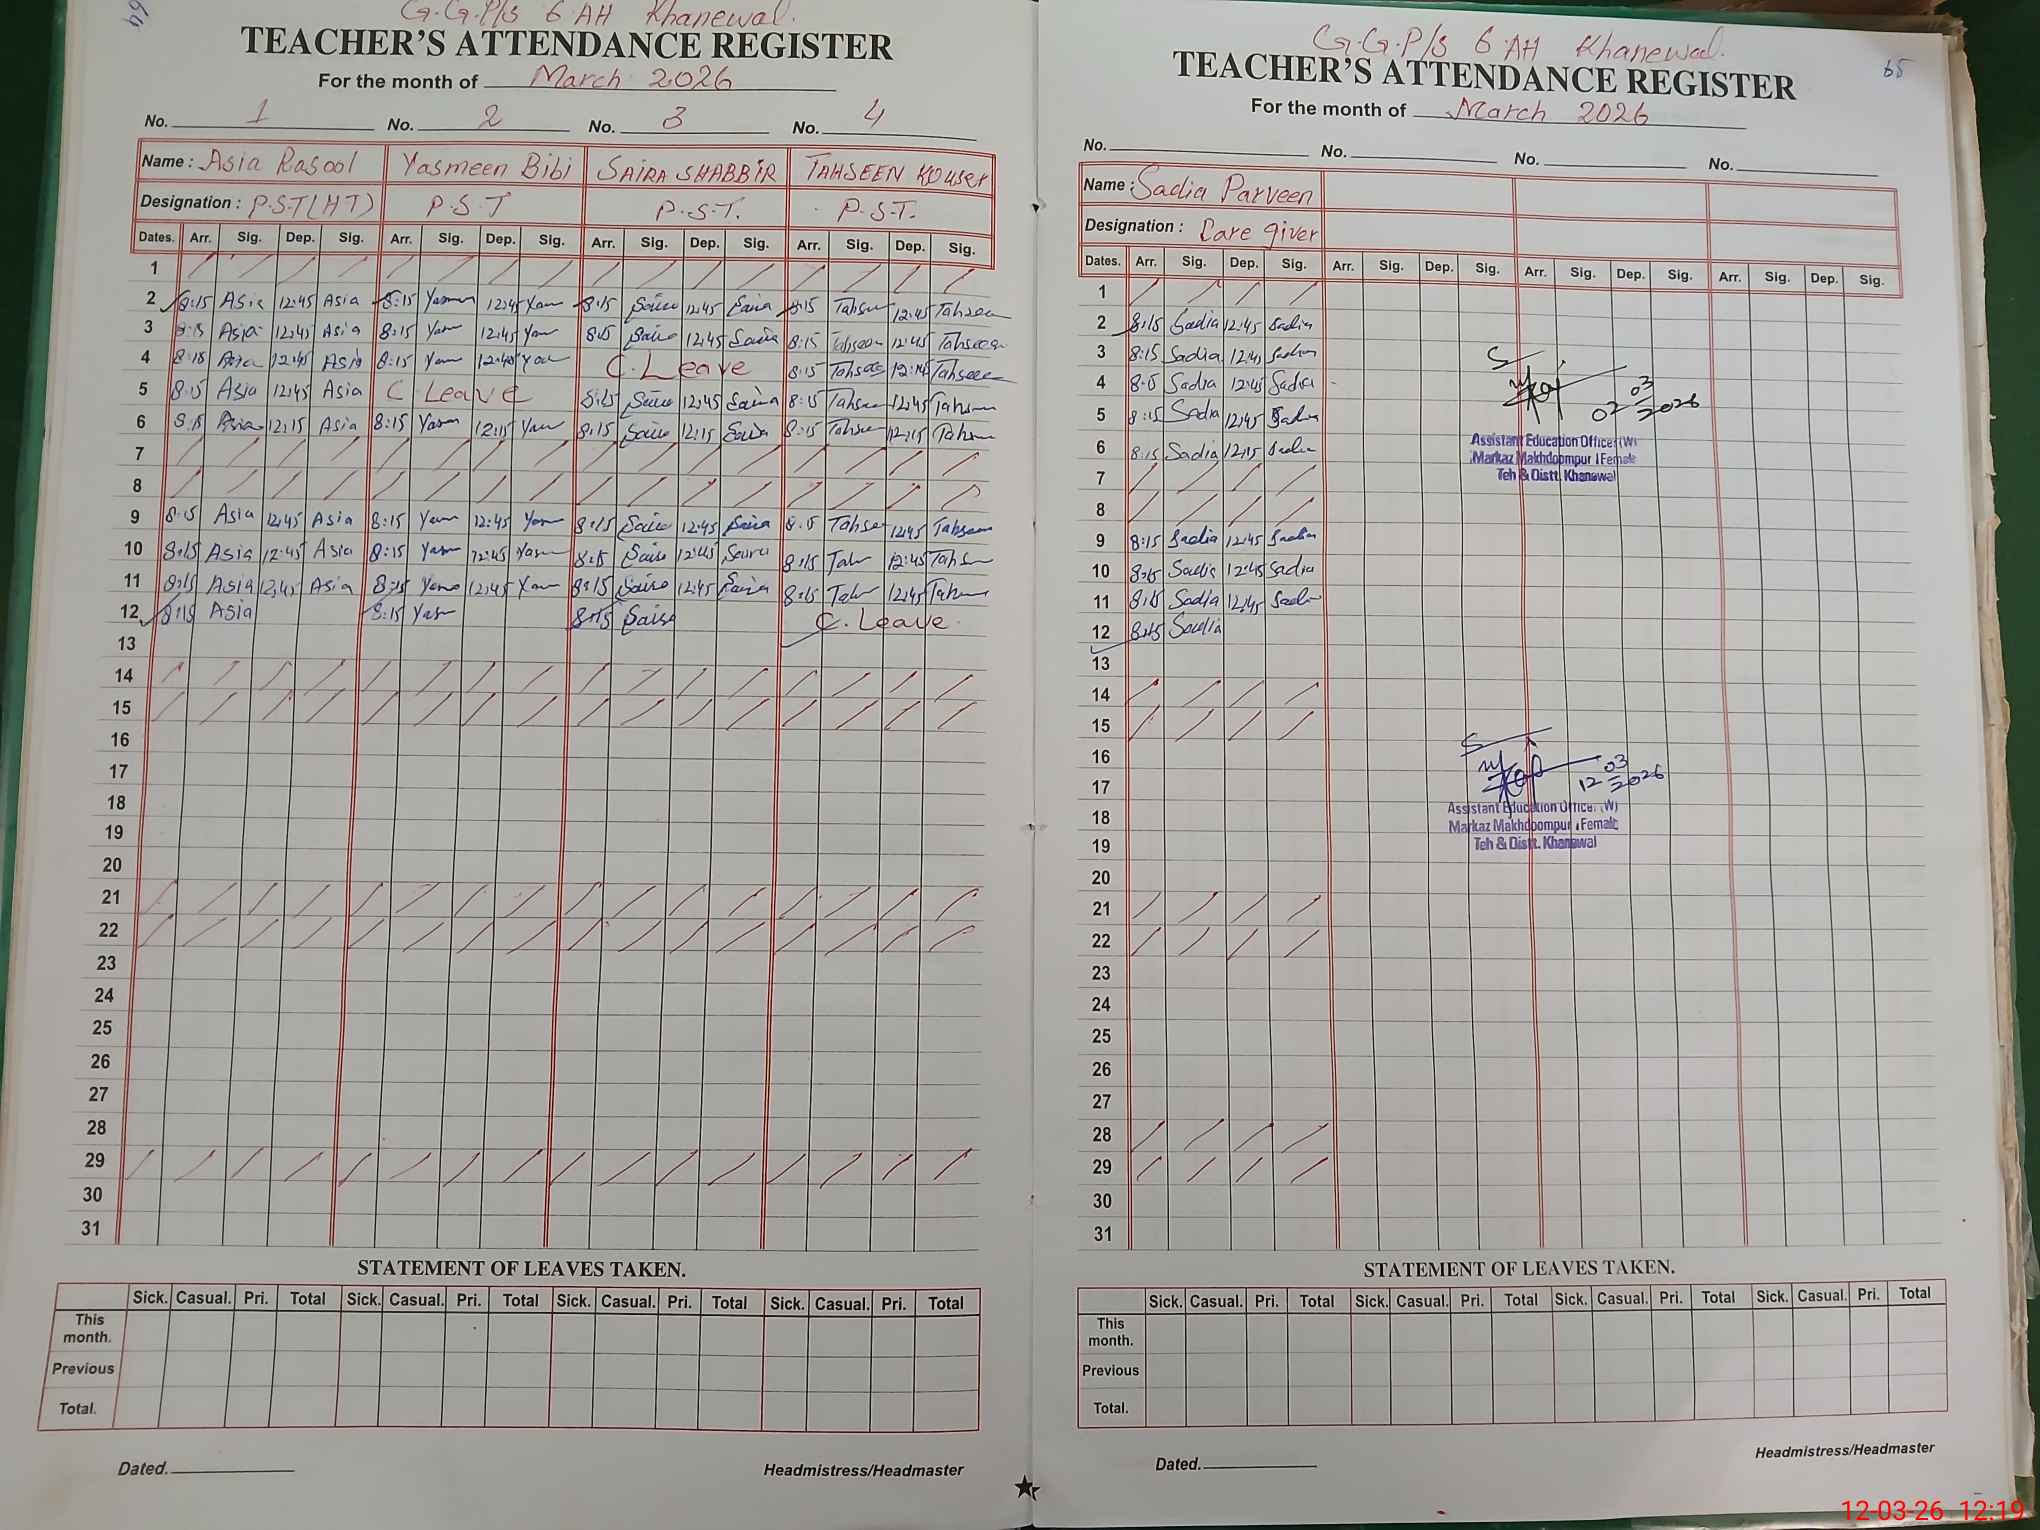 64
G.G.P/S 6 AH Khanewal.
TEACHER'S ATTENDANCE REGISTER
For the month of March 2026
No. 1 No. 2 No. 3 No. 4
Name : Asia Rasool Yasmeen Bibi SAIRA SHABBIR TAHSEEN KOUSER
Designation : P.S.T(HT) P.S.T P.S.T. P.S.T.
Dates. Arr. Sig. Dep. Sig. Arr. Sig. Dep. Sig. Arr. Sig. Dep. Sig. Arr. Sig. Dep. Sig.
1
2 8:15 Asia 12:45 Asia 8:15 12:45 8:15 Saira 12:45 Saira 8:15 12:45 Tahseen
3 8:15 Asia 12:45 Asia 8:15 12:45 8:15 Saira 12:45 Saira 8:15 Tahseen 12:45 Tahseen
4 8:15 Asia 12:45 Asia 8:15 12:45 C.Leave 8:15 Tahseen 12:45 Tahseen
5 8:15 Asia 12:45 Asia C.Leave 8:15 Saira 12:45 Saira 8:15 12:45
6 8:15 Asia 12:15 Asia 8:15 12:15 8:15 Saira 12:15 Saira 8:15 12:15
7
8
9 8:15 Asia 12:45 Asia 8:15 12:45 8:15 Saira 12:45 Saira 8:15 12:45 Tahseen
10 8:15 Asia 12:45 Asia 8:15 12:45 8:15 Saira 12:45 Saira 8:15 12:45
11 8:15 Asia 12:45 Asia 8:15 12:45 8:15 Saira 12:45 Saira 8:15 12:45
12 8:15 Asia 8:15 8:15 Saira C.Leave
13
14
15
16
17
18
19
20
21
22
23
24
25
26
27
28
29
30
31
STATEMENT OF LEAVES TAKEN.
Sick. Casual. Pri. Total Sick. Casual. Pri. Total Sick. Casual. Pri. Total Sick. Casual. Pri. Total
This month.
Previous
Total.
Dated. Headmistress/Headmaster
65
G.G.P/S 6 AH Khanewal.
TEACHER'S ATTENDANCE REGISTER
For the month of March 2026
No. No. No. No.
Name : Sadia Parveen
Designation : Care giver
Dates. Arr. Sig. Dep. Sig. Arr. Sig. Dep. Sig. Arr. Sig. Dep. Sig. Arr. Sig. Dep. Sig.
1
2 8:15 Sadia 12:45 Sadia
3 8:15 Sadia 12:45 Sadia
4 8:15 Sadia 12:45 Sadia
5 8:15 Sadia 12:45 Sadia
6 8:15 Sadia 12:15 Sadia
7
8
9 8:15 Sadia 12:45 Sadia
10 8:15 Sadia 12:45 Sadia
11 8:15 Sadia 12:45 Sadia
12 8:15 Sadia
13
14
15
16
17
18
19
20
21
22
23
24
25
26
27
28
29
30
31
02 03 2026
Assistant Education Officer (W)
Markaz Makhdoompur (Female
Teh & Distt. Khanewal
12 03 2026
Assistant Education Officer (W)
Markaz Makhdoompur (Female
Teh & Distt. Khanewal
STATEMENT OF LEAVES TAKEN.
Sick. Casual. Pri. Total Sick. Casual. Pri. Total Sick. Casual. Pri. Total Sick. Casual. Pri. Total
This month.
Previous
Total.
Dated. Headmistress/Headmaster
12-03-26 12:19